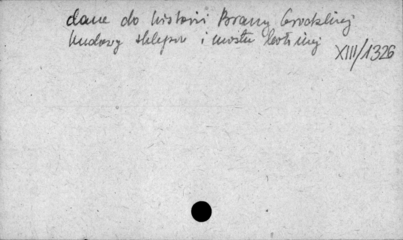 dane do historii Bramy Grodzkiej
budowy sklepów i mostu
XIII/1326